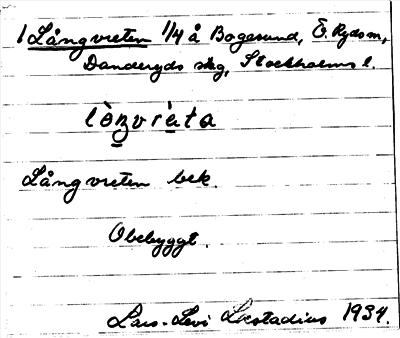 1 Långvreten 1/4 å Bogesund, Ö. Ryds sn,
Danderyds skg, Stockholms l.
lòŋvrèta
Långvreten bek.
Obebyggt.
Lars-Levi Læstadius 1934.